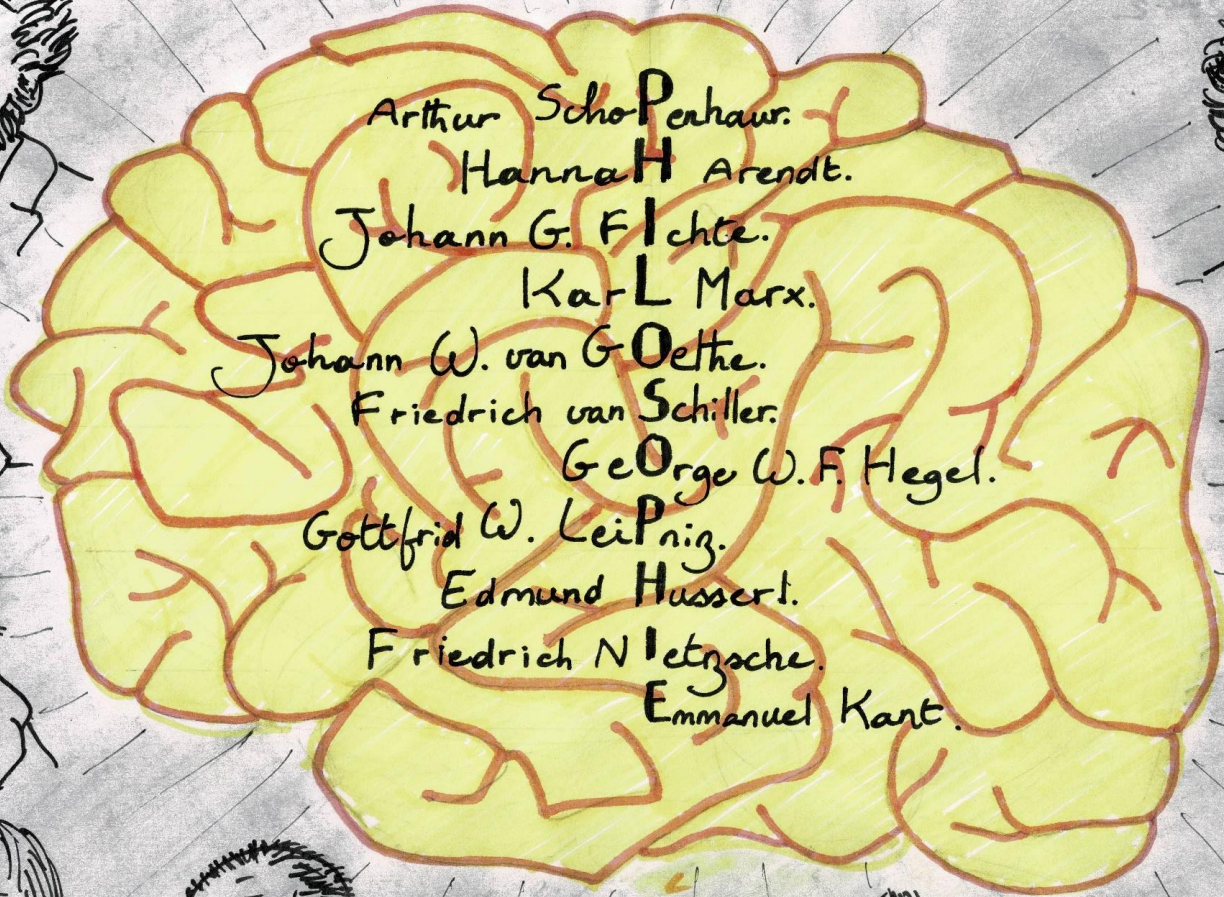 Arthur SchoPenhaur.
HannaH Arendt.
Johann G. FIchte.
KarL Marx.
Johann W. van GOethe.
Friedrich van Schiller.
GeOrge W. F. Hegel.
Gottfrid W. LeiPniz.
Edmund Husserl.
Friedrich NIetzsche.
Emmanuel Kant.